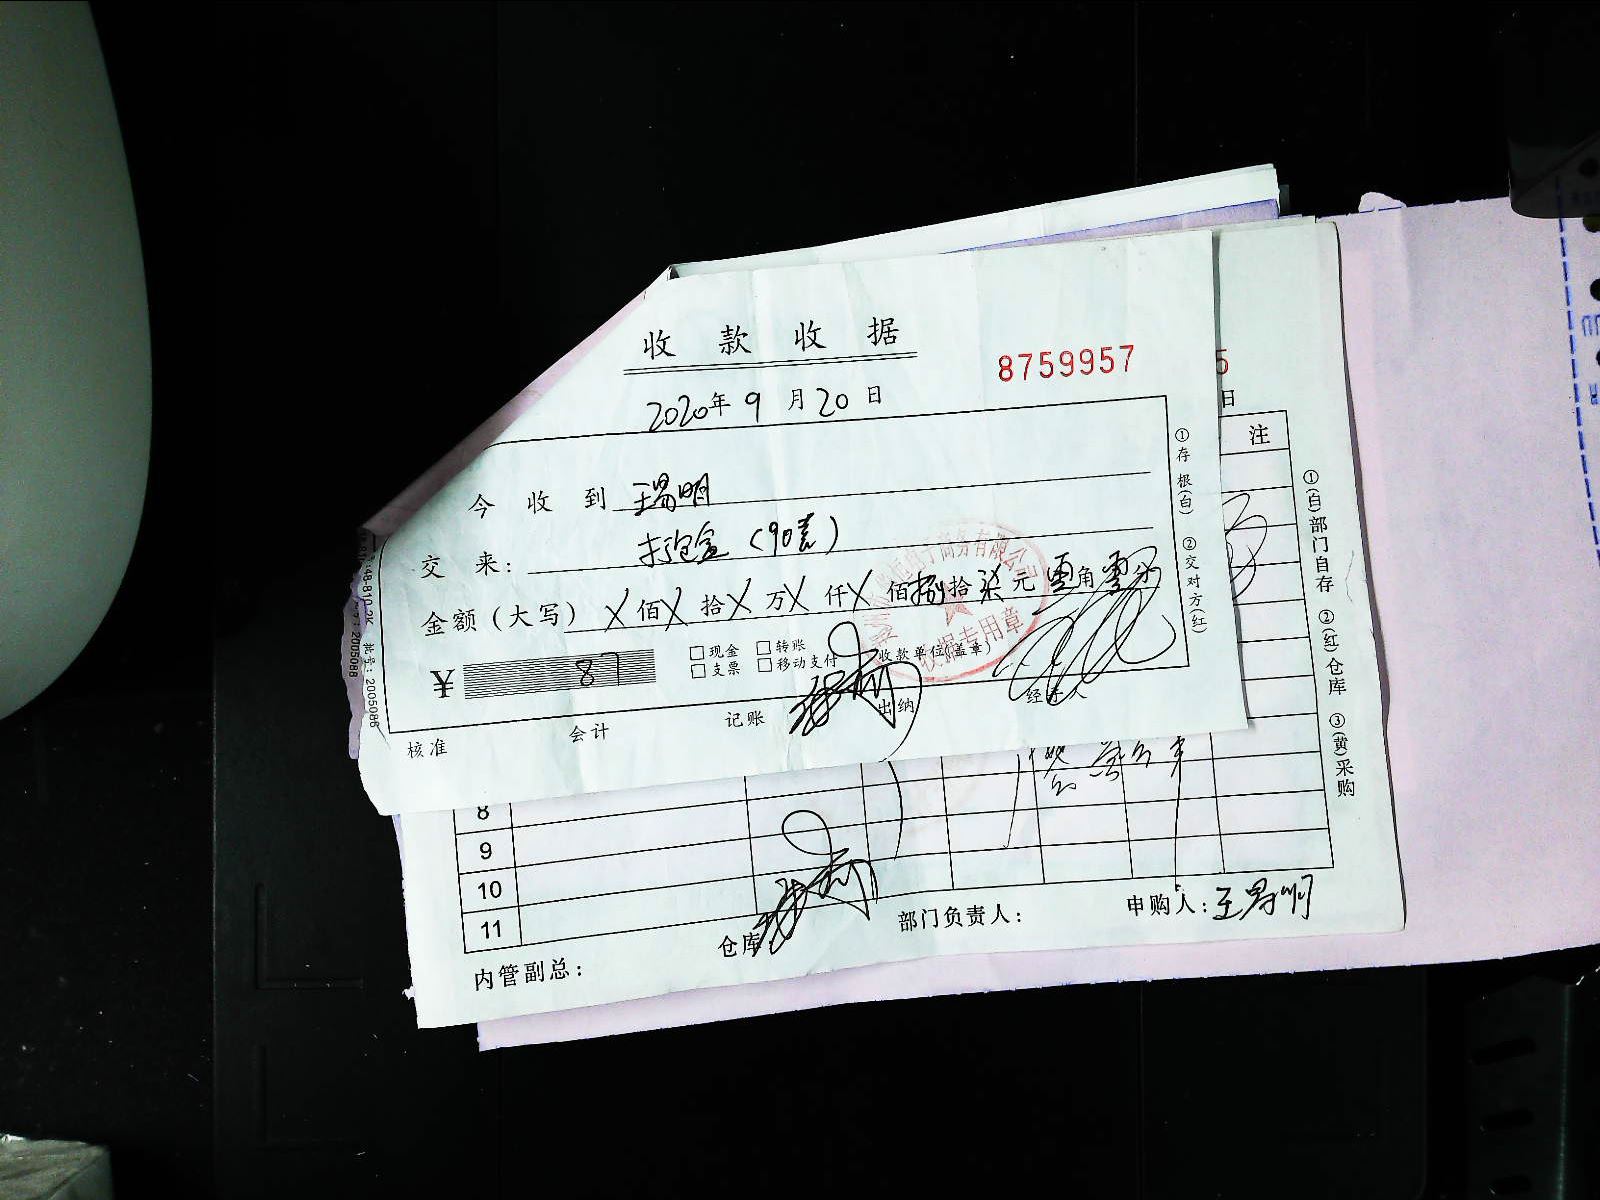 收款收据
8759957
5
2020年9月20日
日
今收到 王易明
注
交来: 打包盒(90套)
金额(大写) X佰X拾X万X仟X佰捌拾柒元零角零分
¥ 87
□现金 □转账
□支票 □移动支付
收款单位(盖章)
收据专用章
核准 会计 记账 出纳 经手人
①存根(白) ②交对方(红)
批号: 2005088
8
9
10
11
仓库 部门负责人: 申购人:王易明
内管副总:
①(白)部门自存 ②(红)仓库 ③(黄)采购